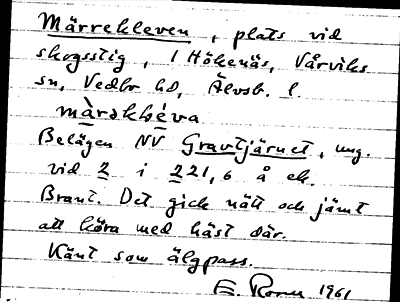 Märrekleven, plats vid
skogsstig, i Hökenäs, Vårviks
sn, Vedbo hd, Älvsb. l.
mà̀rəkḷéva
Belägen NV Gravtjärnet, ung.
vid 2 i 221,6 å ek.
Brant. Det gick nätt och jämt
att köra med häst där.
Känt som älgpass.
E. 1961